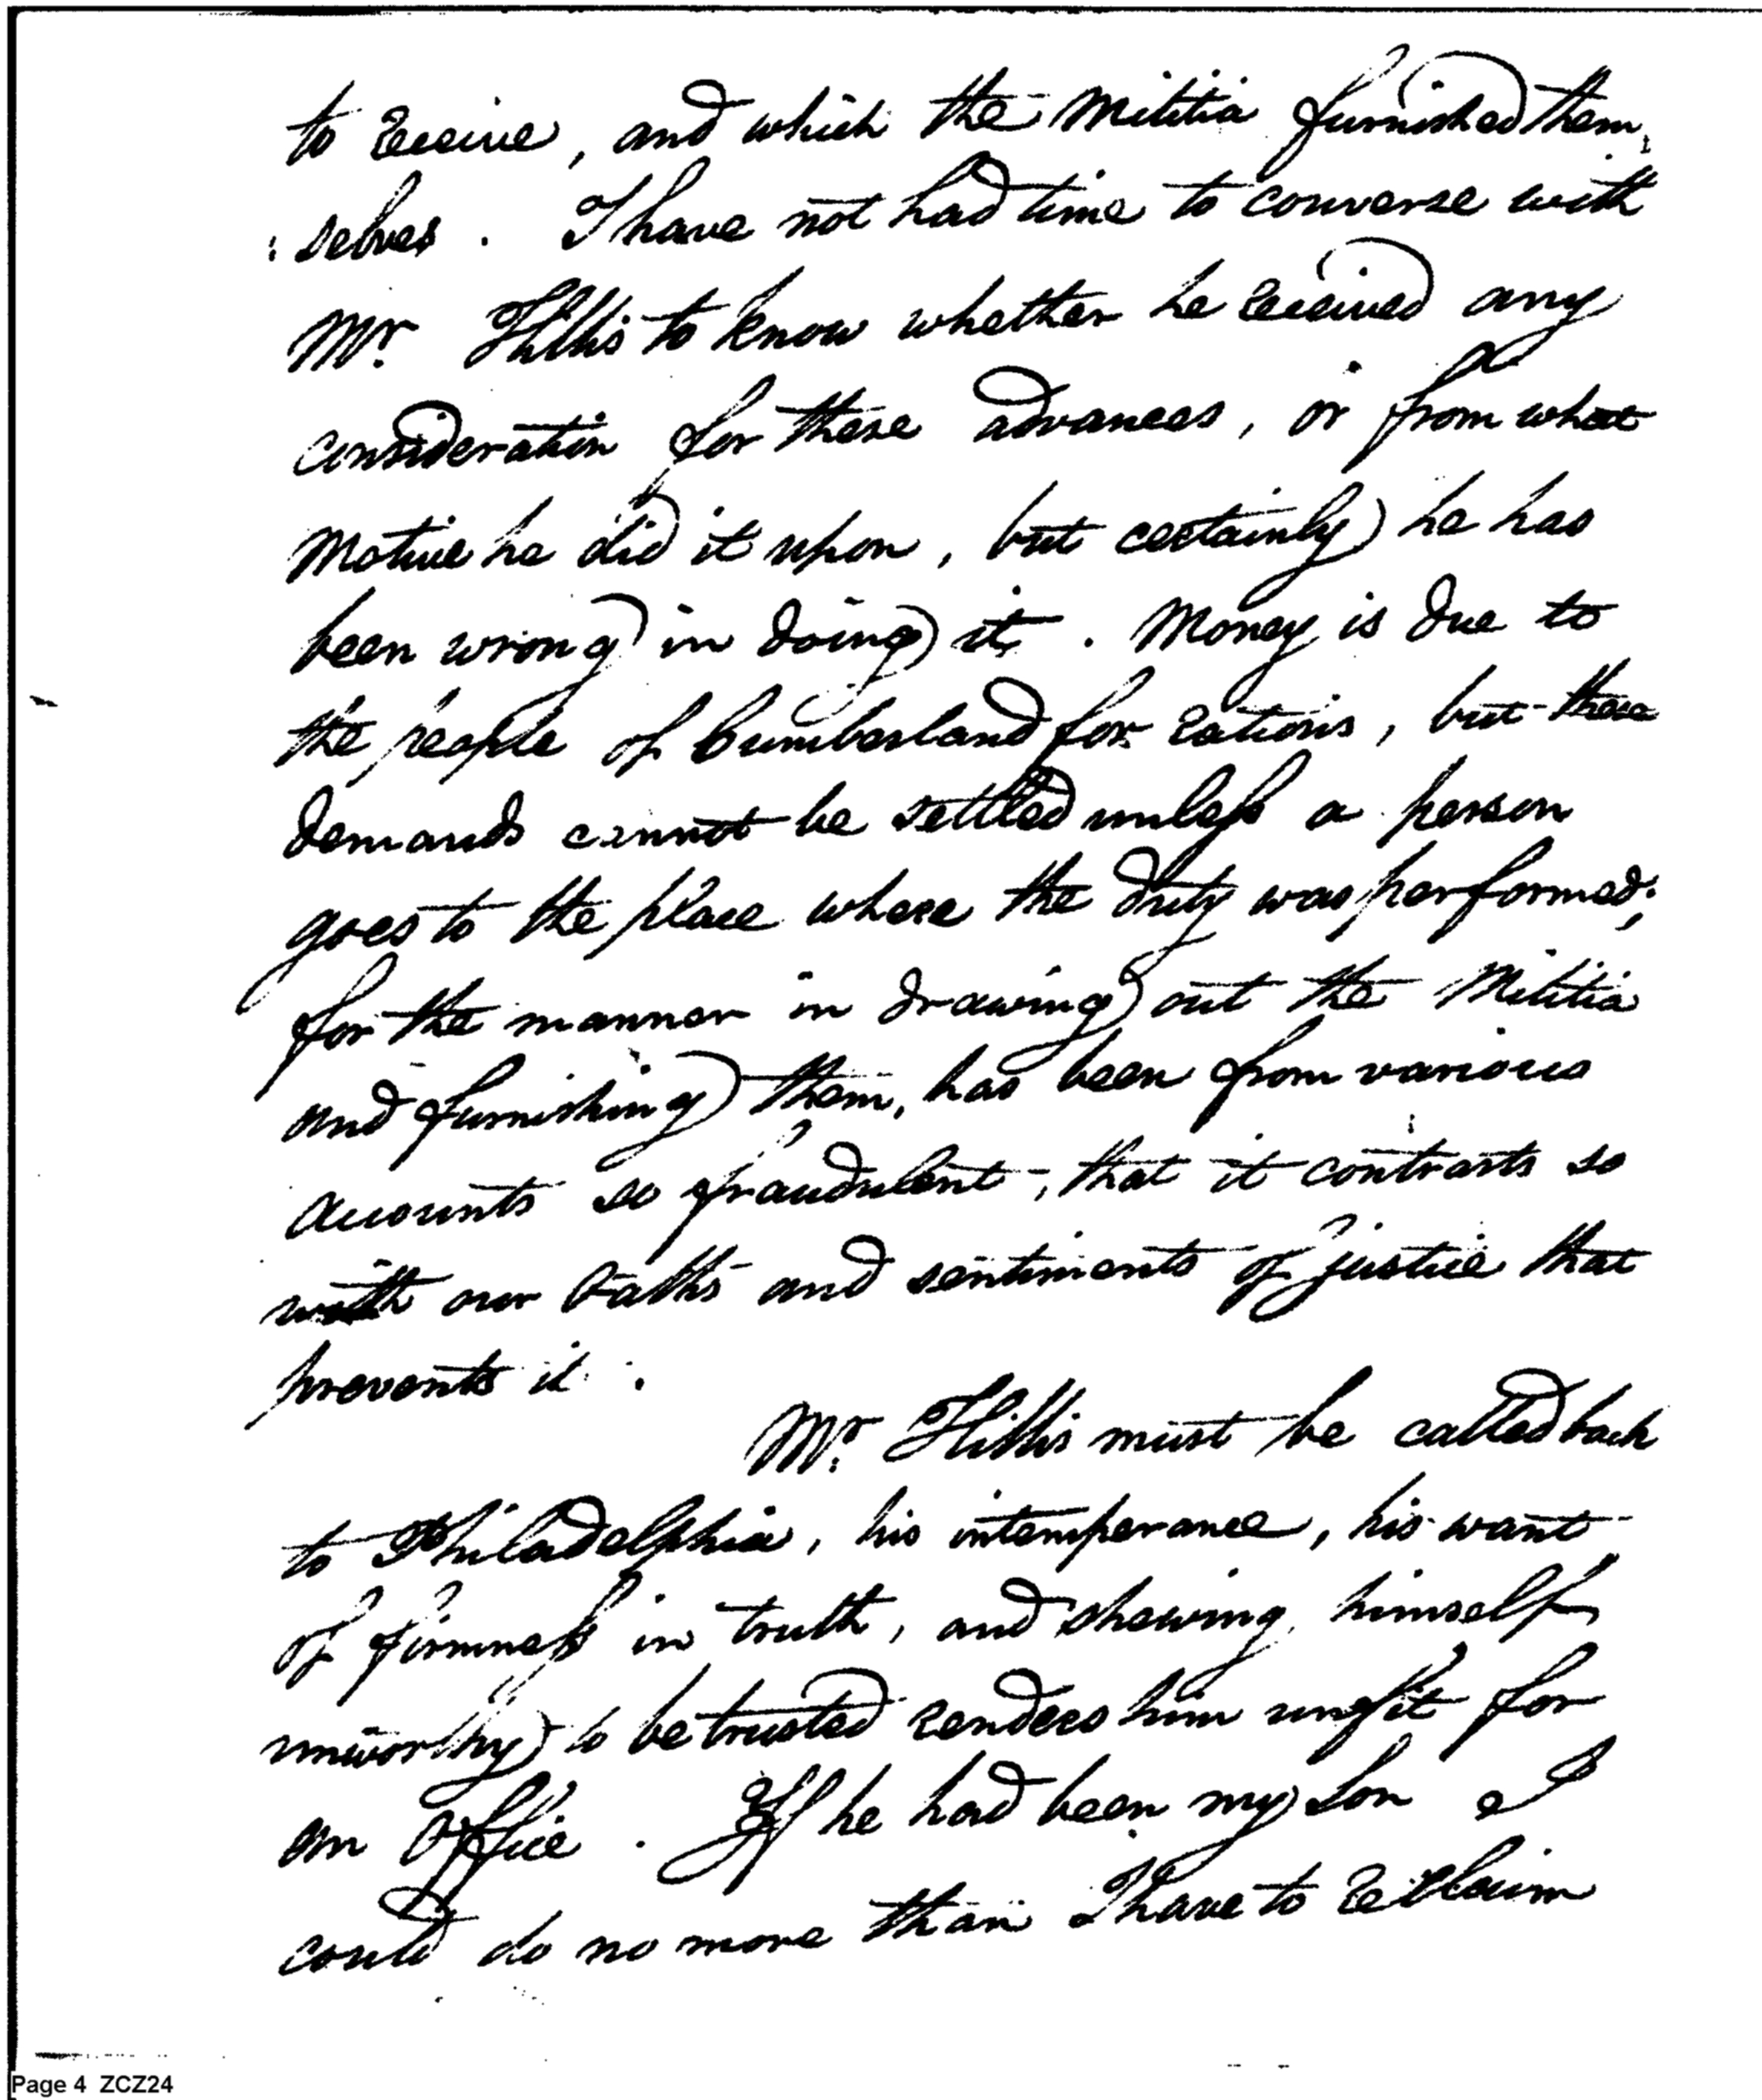 to receive, and which the Militia furnished them,
: selves. I have not had time to converse with
Mr. Hillis to know whether he received any
consideration for these advances, or from what
Motive he did it upon, but certainly he has
been wrong in doing it. Money is due to
the people of Cumberland for rations, but these
demands cannot be settled unless a person
goes to the place where the duty was performed;
for the manner in drawing out the Militia
and furnishing them, has been from various
accounts so fraudulent, that it contrasts so
with our Oaths and sentiments of justice that
prevents it.
Mr. Hillis must be called back
to Philadelphia, his intemperance, his want
of firmness in truth, and shewing himself
unworthy to be trusted renders him unfit for
an Office. If he had been my Son I
could do no more than I have to reclaim
Page 4 ZCZ24